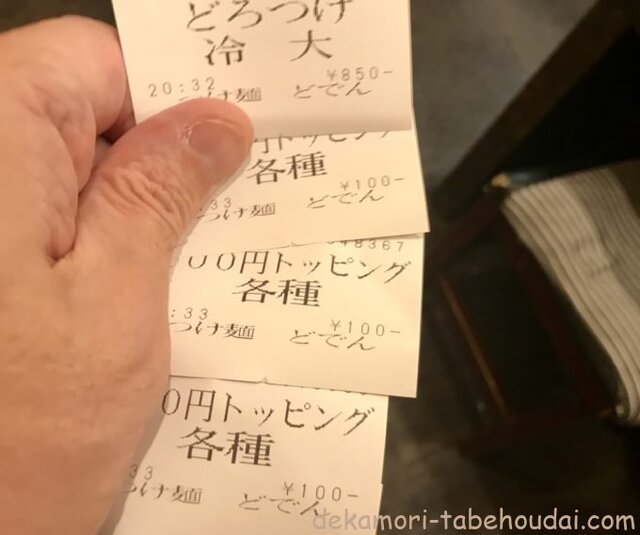 どろつけ
冷 大
20:32 ¥850-
つけ麺 どでん
円トッピング
各種
33 ¥100-
つけ麺 どでん
48367
00円トッピング
各種
:33 ¥100-
つけ麺 どでん
0円トッピング
各種
33 ¥100-
つけ麺 どでん
dekamori-tabehoudai.com